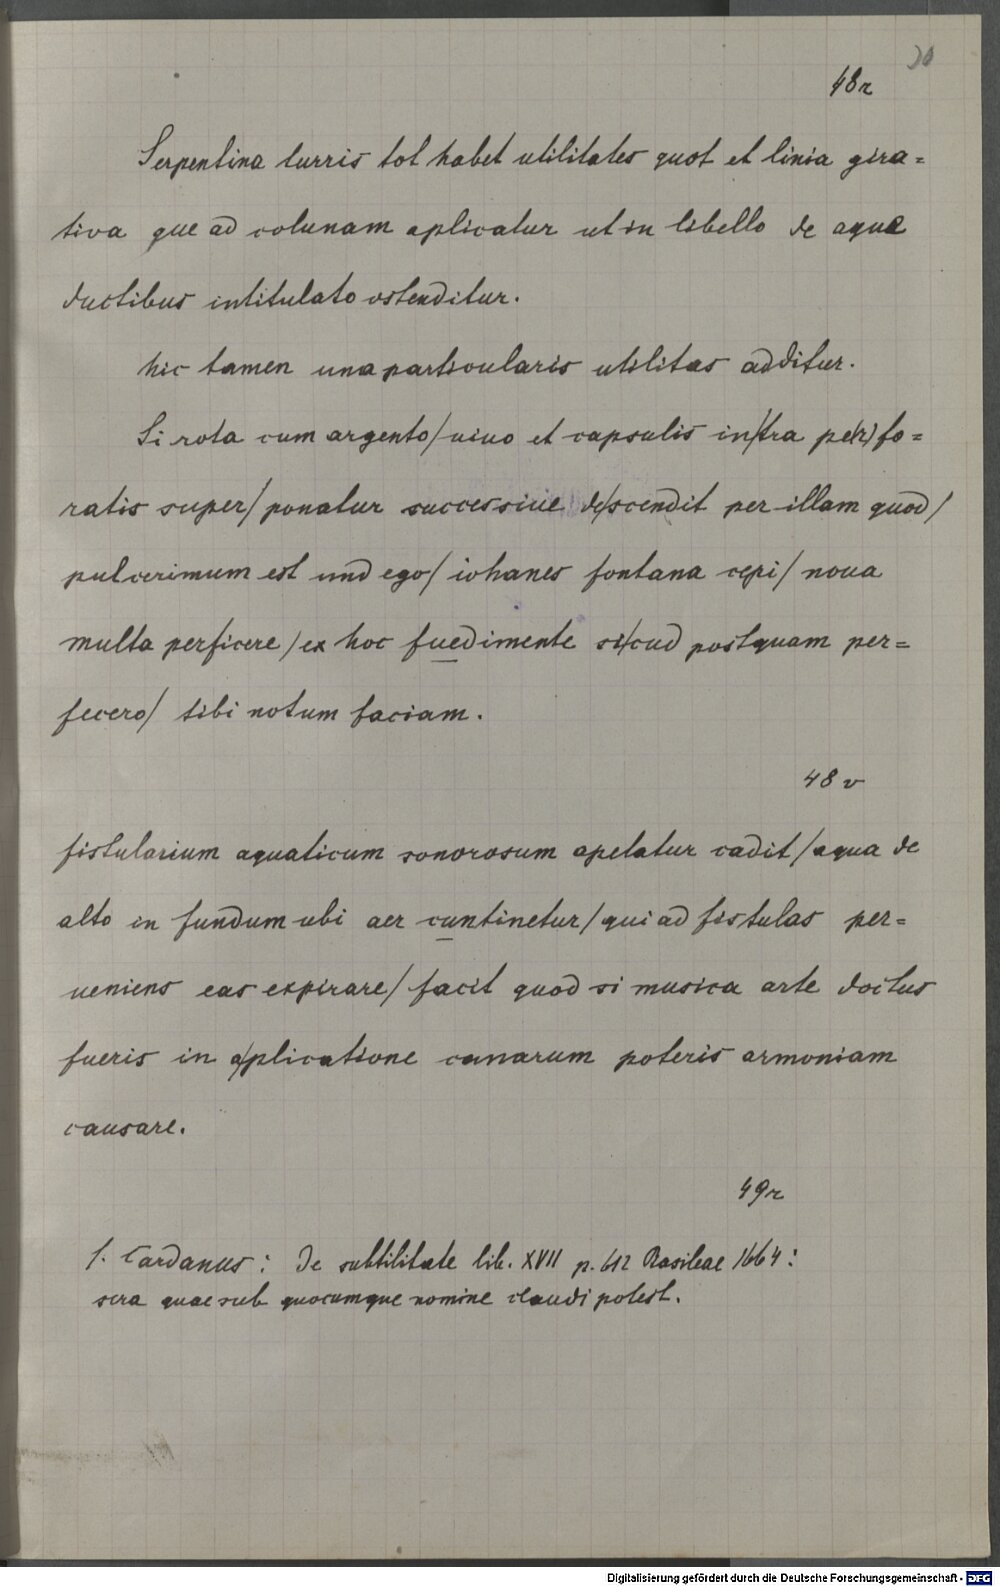 20
48r
Serpentina turris tot habet utilitates quot et linia gira=
tiva que ad colunam aplicatur ut in libello de aque
ductibus intitulato ostenditur.
hic tamen una particularis utilitas additur.
Si rota cum argento/uiuo et capsulis in/tra pe(r)fo=
ratis super/ponatur successiue de/scendit per illam quod/
pulcerimum est und ego/iohanes fontana cepi/noua
multa perficere/ex hoc fuedimente si/cud postquam per=
fecero/ tibi notum faciam.
48v
fistularium aquaticum sonorosum apelatur cadit/aqua de
alto in fundum ubi aer cuntinetur/qui ad fistulas per=
ueniens eas expirare/facit quod si musica arte doctus
fueris in a/plicatione canarum poteris armoniam
causare.
49r
S. Cardanus: De subtilitate lib. XVII p. 612 Basileae 1664:
sera quae sub quocumque nomine claudi potest.
Digitalisierung gefördert durch die Deutsche Forschungsgemeinschaft - DFG